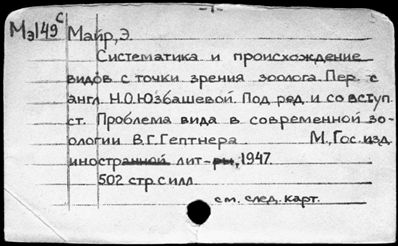 -1-
Мэ149 с
Майр, Э.
Систематика и происхождение
видов с точки зрения зоолога. Пер. с
англ. Н.О.Юзбашевой. Под ред. и со вступ.
ст. Проблема вида в современной зо-
ологии В.Г.Гептнера. М., Гос. изд.
иностранной лит-ры, 1947.
502 стр. с илл.
см. след. карт.